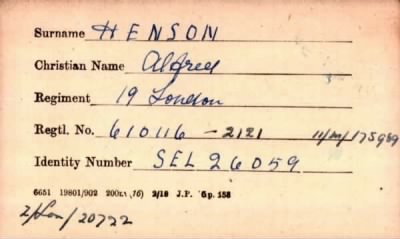 Surname HENSON
Christian Name Alfred
Regiment 19 London
Regtl. No. 610116 - 2121 11/M/175989
Identity Number SEL 26059
6651 19801/902 200M (16) 2/18 J.P. Gp. 158
2/Lon/20722